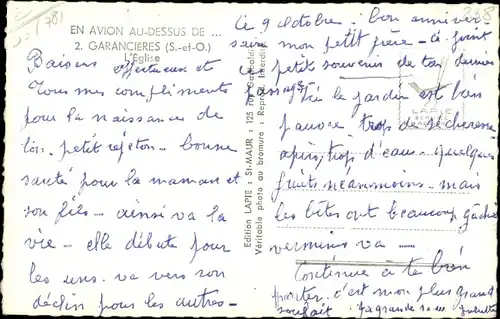 EN AVION AU-DESSUS DE ...
2. GARANCIERES (S.-et-O.)
L'Église
Ce 9 Octobre. bon anniver
saire mon petit frère - ci-joint
petit souvenir de ton dernier
passage
le jardin est bien
pauvre trop de sécheresse
après trop d'eau. quelques
fruits néanmoins - mais
les bêtes ont beaucoup gâché
vermines va -
Continue à te bien
porter. c'est mon plus grand
souhait. Ta grande sœur Juliette
Edition LAPIE : St-MAUR : 125
Véritable photo au bromure : Reprod. interdite
LAPIE
Baisers affectueux et
Tous mes compliments
pour la naissance de
petit rejeton - bonne
santé pour la maman et
son fils - ainsi va la
vie - elle débute pour
les uns. va vers son
déclin pour les autres -